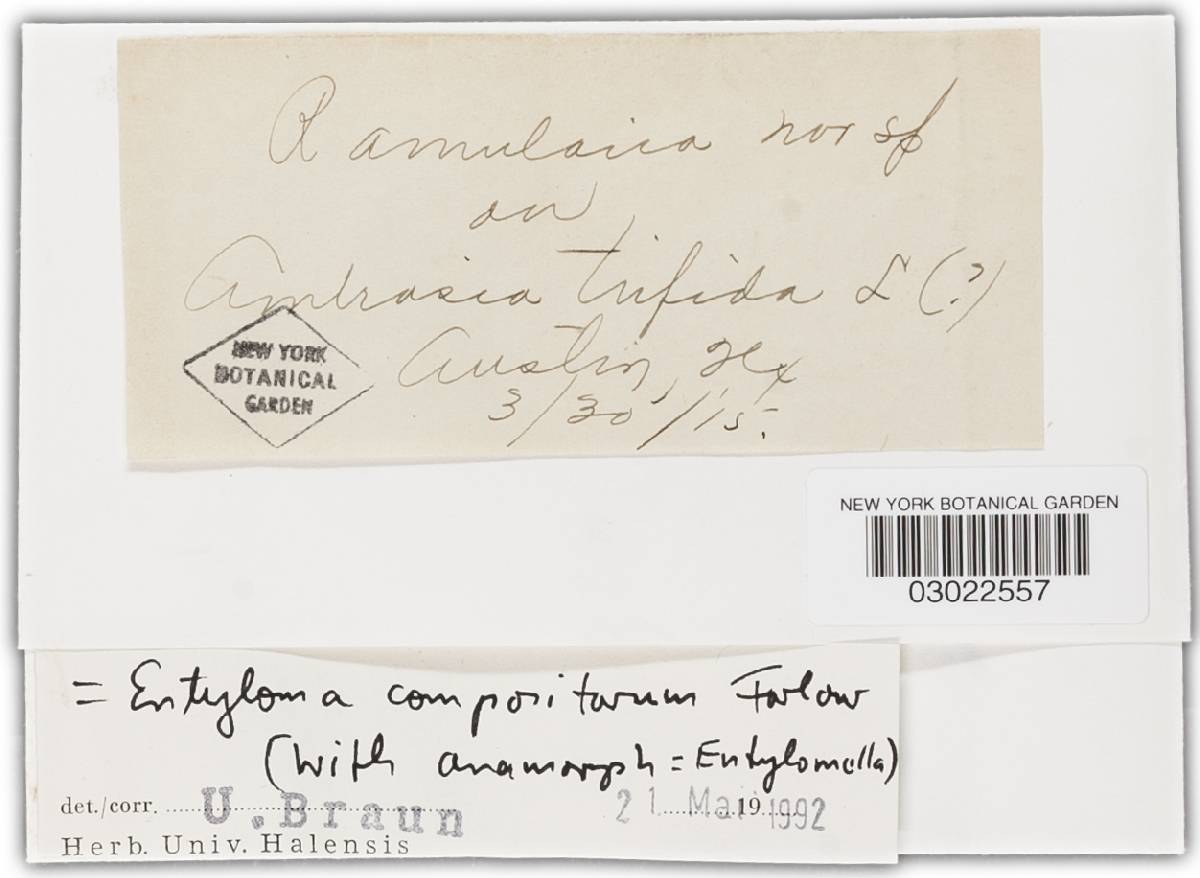 Ramularia nov sp
on
Ambrosia trifida L (?)
Austin, Tex
3/30/15.
NEW YORK
BOTANICAL
GARDEN
NEW YORK BOTANICAL GARDEN
03022557
= Entyloma compositarum Farlow
(with anamorph = Entylomella)
det./corr. U. Braun 21. Mai 19 1992
Herb. Univ. Halensis